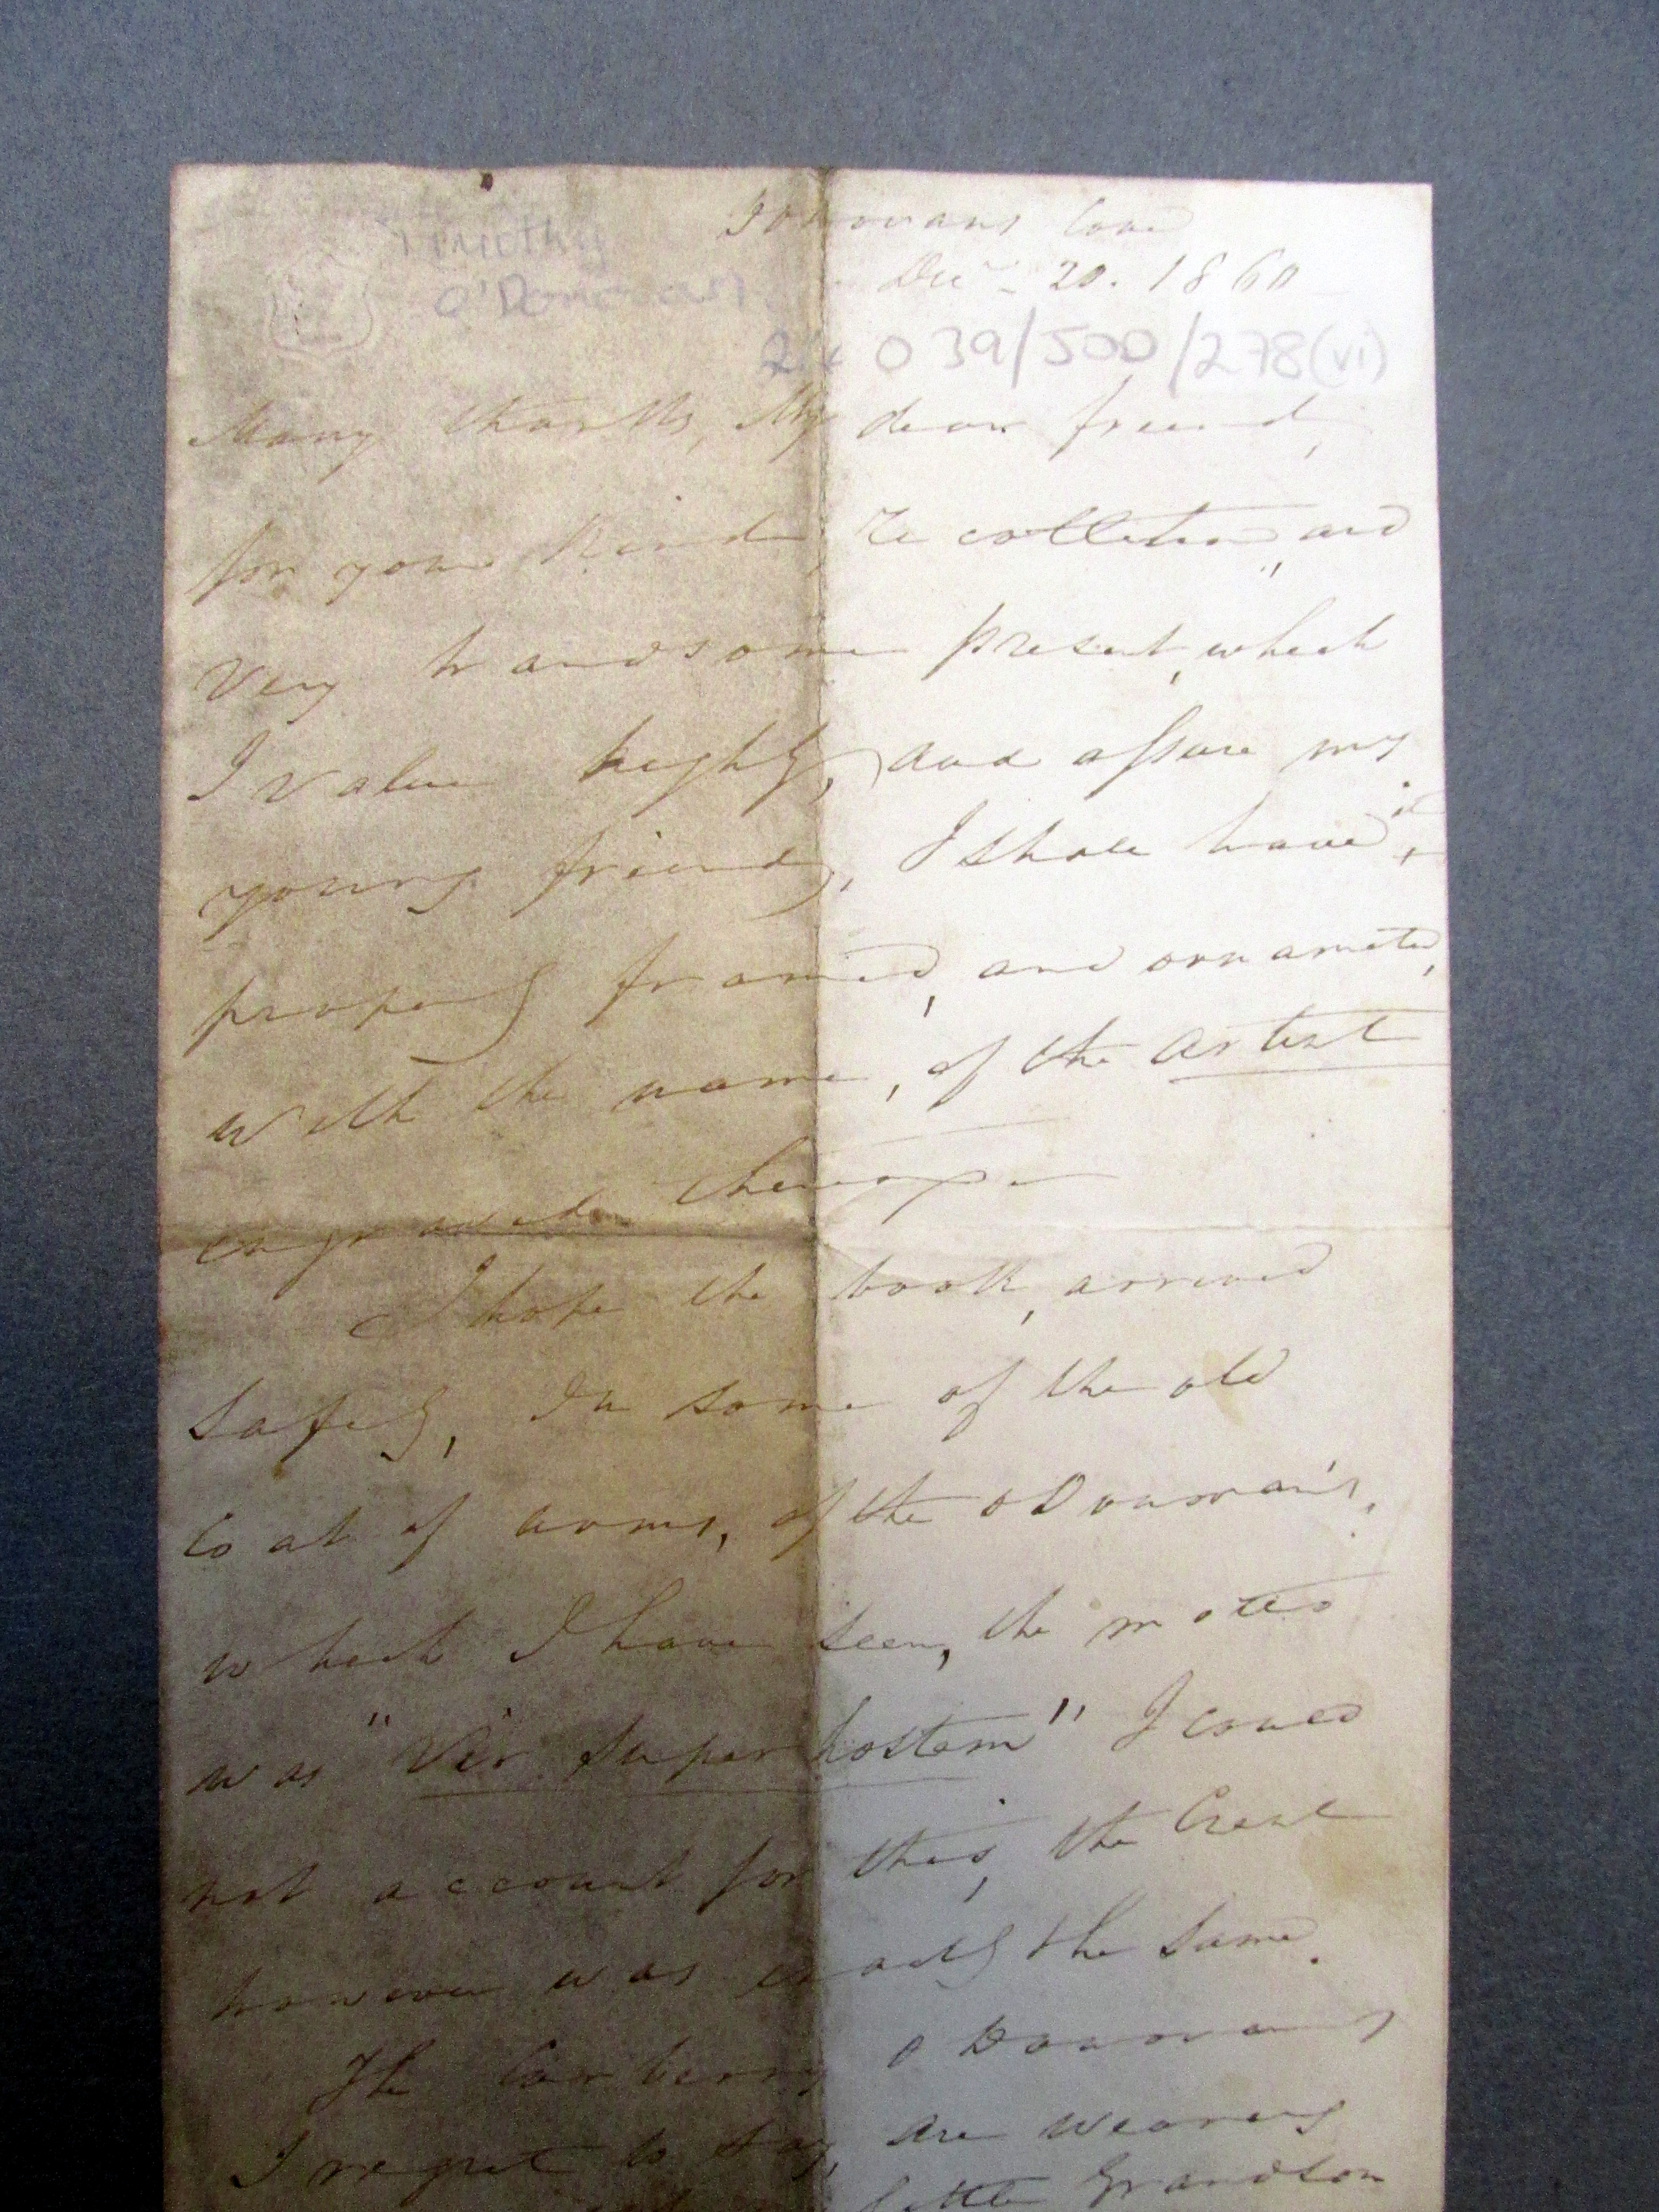 Donovans Cove
Decr 20. 1860
Timothy
O'Donovan
24 O 39/500/278(vi)
Many thanks, My dear friend,
for your kind recollection, and
very handsome present, which
I value highly, and assure my
young friend, I shall have it,
properly framed, and ornamented,
with the name, of the artist
engraved thereupon
I hope the book, arrived
safely, In some of the old
Coat of arms, of the ODonovan's,
which I have seen, the motto
was "Vir super hostem" I could
not account for this, the Crest
however was exactly the same.
The Carbery O Donovans
I regret to say, are wearing
little Grandson